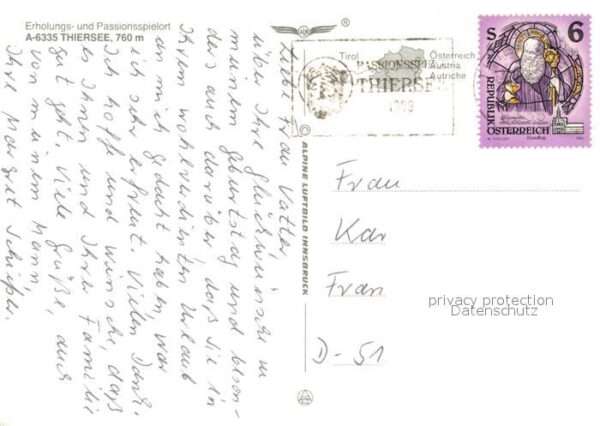 Erholungs- und Passionsspielort
A-6335 THIERSEE, 760 m
®
Liebe Frau Vatter,
über Ihre Glückwünsche zu
meinem Geburtstag und beson-
ders auch darüber, daß Sie in
Ihrem wohlverdienten Urlaub
an mich gedacht haben, war
ich sehr erfreut. Vielen Dank.
Ich hoffe und wünsche, daß
es Ihnen und Ihrer Familie
gut geht. Viele Grüße, auch
von meinem Mann,
Ihre Margret
ALPINE LUFTBILD INNSBRUCK
Tirol
Österreich
Austria
Autriche
PASSIONSSPIELE
THIERSEE
S 6
REPUBLIK
ÖSTERREICH
Frau
Kar
Fran
D-51
privacy protection
Datenschutz